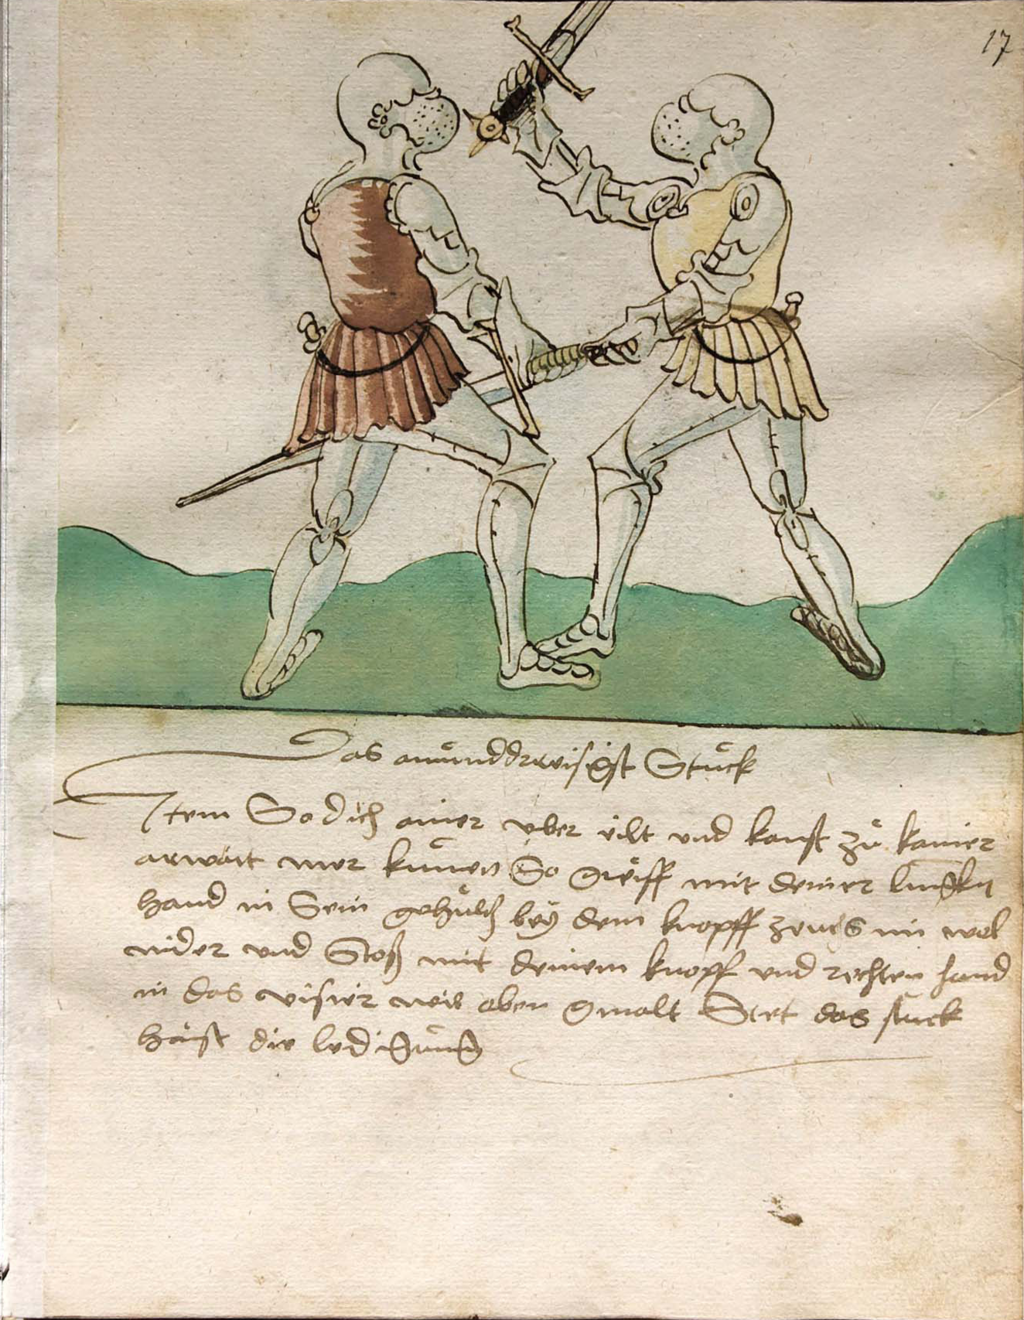 17
Das ainunddreisigist Stuckh
Item So dich ainer vber eilt vnd kanst zu kainer
arwait mer kumen So greiff mit deiner lingken
hand in Sein gehultz bey dem knopff zeuchs im wol
nider vnd Stoß mit deinem knopf vnd rechten hand
in das visier wie oben gmalt Stet das stuck
haist die ledigung